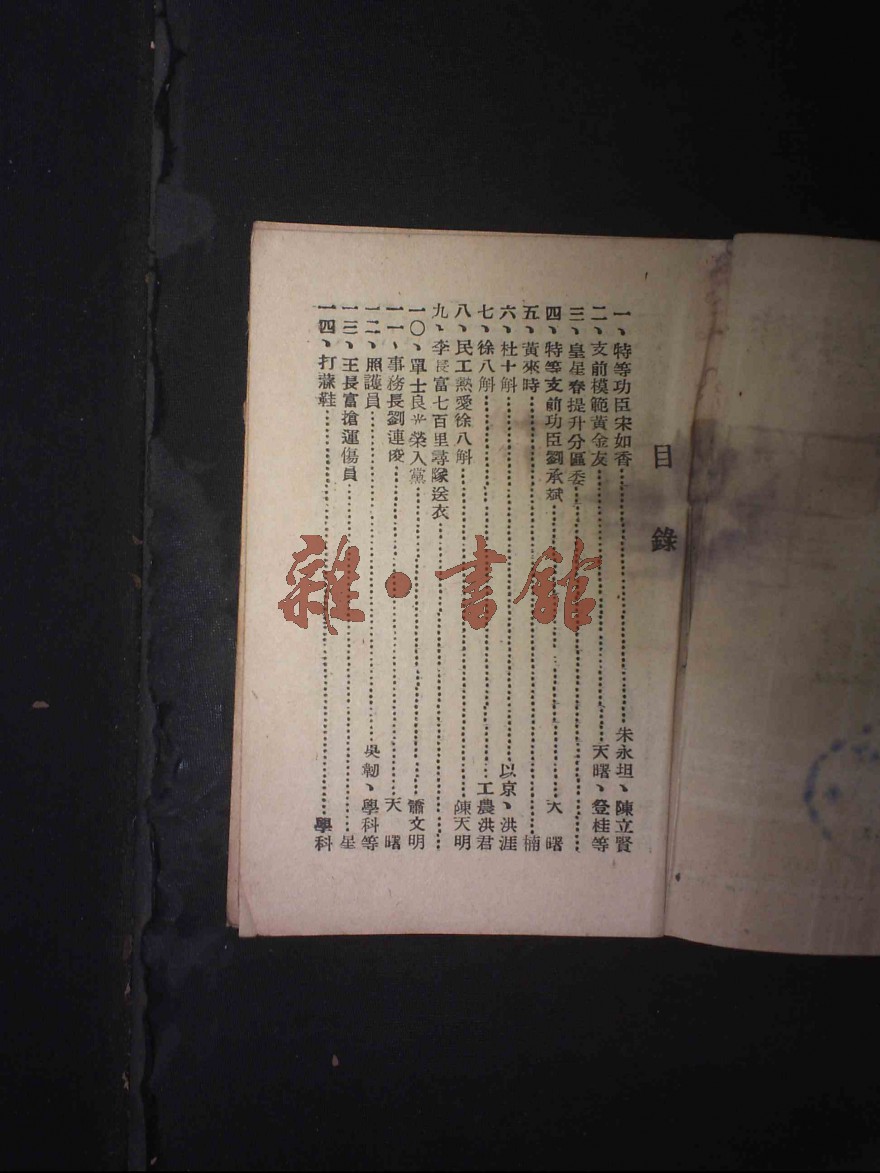 目錄
一、特等功臣宋如香……朱永坦、陳立賢
二、支前模範黃金友……天曙、登桂等
三、皇星春提升分區委……
四、特等支前功臣劉承斌……大曙
五、黃來時……楠
六、杜十斛……以京、洪涯
七、徐八斛……工農洪君
八、民工熱愛徐八斛……陳天明
九、李長富七百里尋隊送衣……
一〇、單士良光榮入黨……蕭文明
一一、事務長劉連俊……天曙
一二、照護員……吳韌、學科等
一三、王長富搶運傷員……星
一四、打蔴鞋……學科
雜·書館